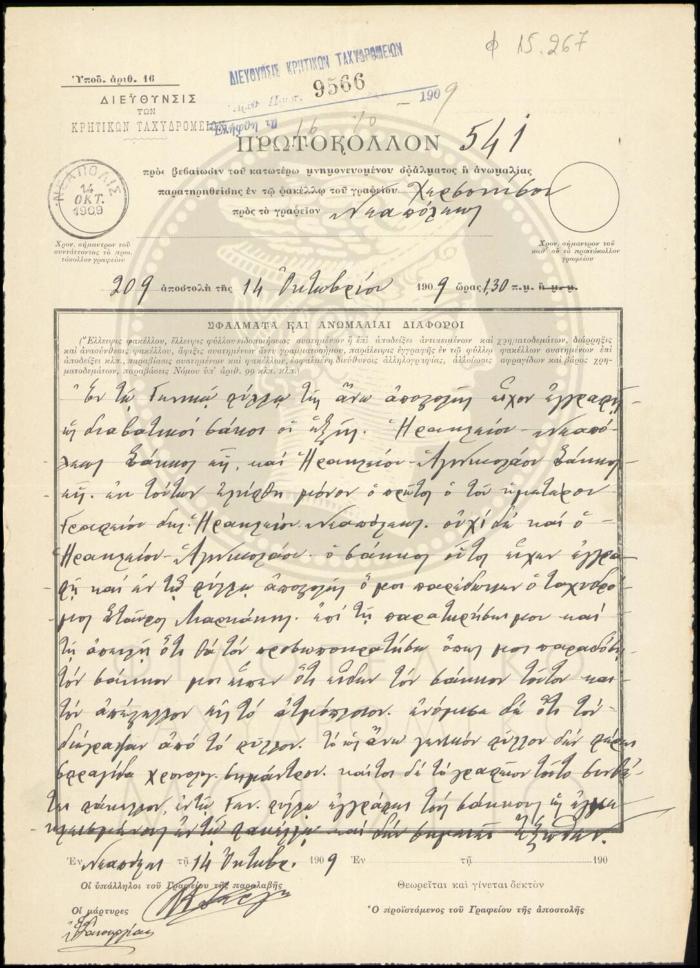 φ 15.267
Ὑποδ. ἀριθ. 16
ΔΙΕΥΘΥΝΣΙΣ
ΤΩΝ
ΚΡΗΤΙΚΩΝ ΤΑΧΥΔΡΟΜΕΙΩΝ
ΔΙΕΥΘΥΝΣΙΣ ΚΡΗΤΙΚΩΝ ΤΑΧΥΔΡΟΜΕΙΩΝ
9566
16 10 1909
ΠΡΩΤΟΚΟΛΛΟΝ 541
πρὸς βεβαίωσιν τοῦ κατωτέρω μνημονευομένου σφάλματος ἢ ἀνωμαλίας
παρατηρηθείσης ἐν τῷ φακέλλῳ τοῦ γραφείου Χερσονήσου
πρὸς τὸ γραφεῖον Νεαπόλεως
ΝΕΑΠΟΛΙΣ
14
ΟΚΤ.
1909
Χρον. σήμαντρον τοῦ
συντάττοντος τὸ πρω
τόκολλον γραφείου
Χρον. σήμαντρον τοῦ
καθ' οὗ τὸ πρωτόκολλον
γραφείου
209 ἀποστολὴ τῆς 14 Ὀκτωβρίου 1909 ὥρας 1,30 π.μ. ἢ μ.μ.
ΣΦΑΛΜΑΤΑ ΚΑΙ ΑΝΩΜΑΛΙΑΙ ΔΙΑΦΟΡΟΙ
(Ἔλλειψις φακέλλου, ἔλλειψις φύλλου εἰδοποιήσεως συστημένων ἢ ἐπὶ ἀποδείξει ἀντικειμένων καὶ χρηματοδεμάτων, διάρρηξις
καὶ ἀνασύνθεσις φακέλλου, ἄφιξις συστημένων ἄνευ γραμματοσήμου, παράλειψις ἐγγραφῆς ἐν τῷ φύλλῳ φακέλλου συστημένου ἐπὶ
ἀποδείξει κλπ., παραβίασις συστημένου καὶ φακέλλου, ἐσφαλμένη διεύθυνσις ἀλληλογραφίας, ἀλλοίωσις σφραγίδων καὶ βάρος χρη-
ματοδεμάτων, παραβάσεις Νόμου ὑπ' ἀριθ. 99 κλπ. κλπ.)
Ἐν τῷ Γενικῷ φύλλῳ τῆς ἄνω ἀποστολῆς εἶχον ἐγγραφῆ
ὡς διαβατικοί σάκκοι οἱ ἑξῆς. Ἡρακλείου - Νεαπό-
λεως σάκκος εἷς. καὶ Ἡρακλείου - Ἁγ. Νικολάου σάκκος
εἷς. ἐκ τούτων ἐλήφθη μόνον ὁ πρῶτος ὁ τοῦ ἡμετέρου
Γραφείου δηλ. Ἡρακλείου - Νεαπόλεως. οὐχὶ δὲ καὶ ὁ
Ἡρακλείου - Ἁγ. Νικολάου. ὁ σάκκος οὗτος εἶχεν ἐγγρα-
φῆ καὶ ἐν τῷ φύλλῳ ἀποστολῆς ὅ μοι παρέδωκεν ὁ ταχυδρό-
μος Σταῦρος Μαρκάκης. ἐπὶ τῇ παρατηρήσει μου καὶ
τῇ ἀπειλῇ ὅτι θὰ τὸν προσωποκρατήσω ὅπως μοι παραδώσῃ
τὸν σάκκον μοι εἶπεν ὅτι εἶδεν τὸν σάκκον τοῦτον και
τὸν ἀπέστελλον εἰς τὸ ἀτμόπλοιον. ἐνόμισα δὲ ὅτι τὸν
διέγραψαν ἀπὸ τὸ φύλλον. τὸ ὡς ἄνω γενικὸν φύλλον δὲν φέρει
σφραγίδα χρονολ. σημάντρου. καίτοι δὲ τὸ γραφεῖον τοῦτο
φάκελλον, ἐν τῷ Γεν. φύλλῳ ἐγγράφει τοὺς σάκκους ὡς
ἐν τῷ φακέλλῳ καὶ δὲν ἔξωθεν.
Ἐν Νεαπόλει τῇ 14 Ὀκτωβρ. 1909
Ἐν τῇ 190
Οἱ ὑπάλληλοι τοῦ Γραφείου τῆς παραλαβῆς
Θεωρεῖται καὶ γίνεται δεκτὸν
Οἱ μάρτυρες
Ὁ προϊστάμενος τοῦ Γραφείου τῆς ἀποστολῆς